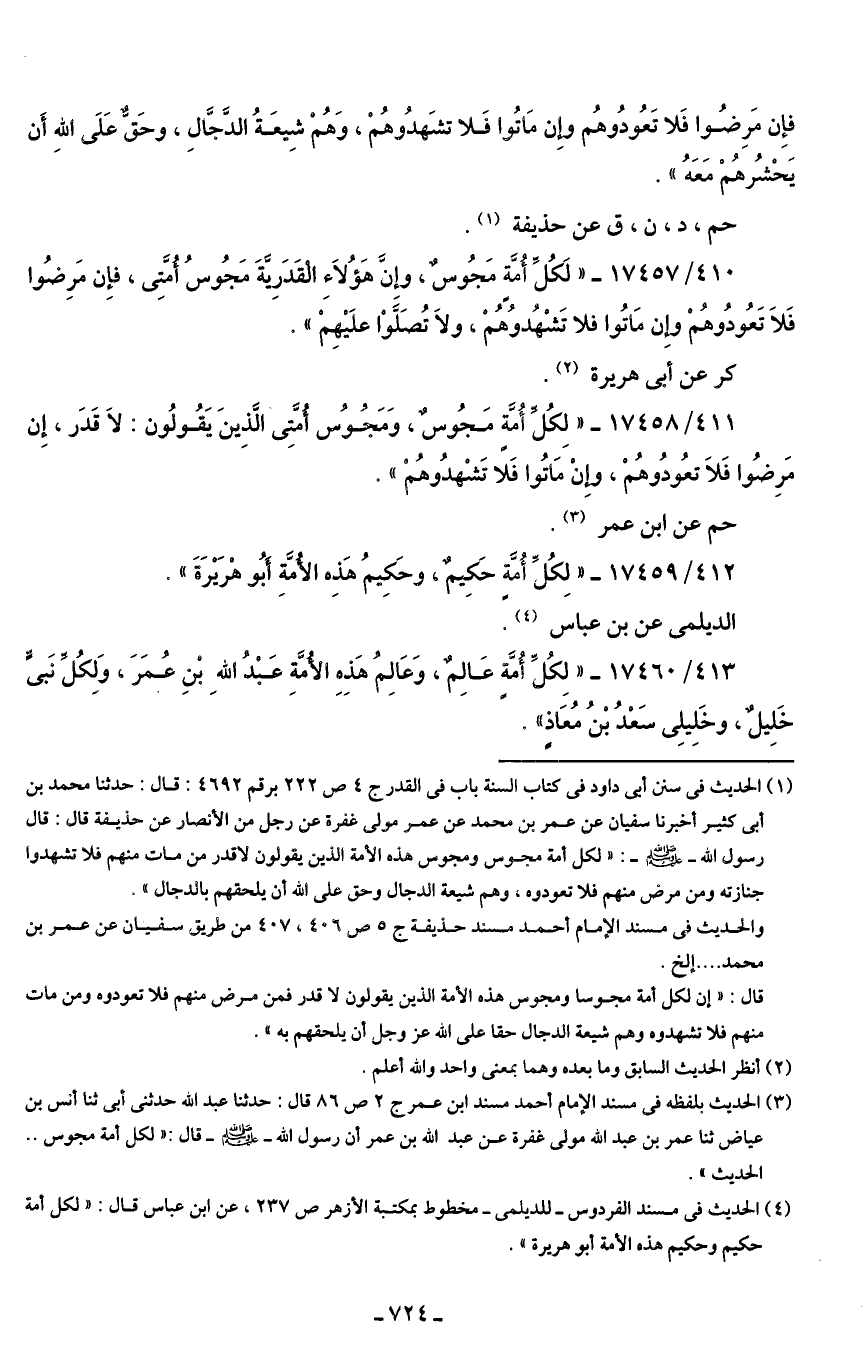 فإِن مَرِضُوا فَلا تَعُودُوهُم وإِن مَاتُوا فَلا تشهدُوهُمْ ، وَهُمْ شِيعَةُ الدَّجَّالِ ، وحَقٌّ عَلَى اللهِ أَن
يَحْشُرهُمْ مَعَهُ » .
حم ، د ، ن ، ق عن حذيفة (١) .
٤١٠/ ١٧٤٥٧ ـ « لَكُلِّ أُمَّةٍ مَجُوسٌ ، وإِنَّ هَؤُلاَءِ الْقَدَرِيَّةَ مَجُوسُ أُمَّتِى ، فإِن مَرِضُوا
فَلاَ تَعُودُوهُمْ وإِن مَاتُوا فلا تَشْهُدُوهُمْ ، ولاَ تُصَلُّوْا علَيْهِمْ » .
كر عن أبى هريرة (٢) .
٤١١/ ١٧٤٥٨ ـ « لِكُلِّ أُمَّةٍ مَجُوسٌ ، وَمَجُوسُ أُمَّتِى الَّذِينَ يَقُولُون : لاَ قَدَر ، إِن
مَرِضُوا فَلاَ تعُودُوهُمْ ، وإِنْ مَاتُوا فَلا تَشْهدُوهُمْ » .
حم عن ابن عمر (٣) .
٤١٢/ ١٧٤٥٩ ـ « لِكُلِّ أُمَّةٍ حَكِيمٌ ، وحَكِيمُ هَذِهِ الأُمَّةِ أَبُو هْرَيْرَةَ » .
الديلمى عن بن عباس (٤) .
٤١٣/ ١٧٤٦٠ ـ « لِكُلِّ أُمَّةٍ عَالِمٌ ، وَعَالِمُ هَذِهِ الأُمَّةِ عَبْدُ اللهِ بْنِ عُمَرَ ، وَلِكُلِّ نَبِىٍّ
خَلِيلٌ ، وخَلِيلِى سَعْدُ بْنُ مُعَاذٍ» .
(١) الحديث فى سنن أبى داود فى كتاب السنة باب فى القدر ج ٤ ص ٢٢٢ برقم ٤٦٩٢ : قال : حدثنا محمد بن
أبى كثير أخبرنا سفيان عن عمر بن محمد عن عمر مولى غفرة عن رجل من الأنصار عن حذيفة قال : قال
رسول الله ـ ﷺ ـ : « لكل أمة مجوس ومجوس هذه الأمة الذين يقولون لاقدر من مات منهم فلا تشهدوا
جنازته ومن مرض منهم فلا تعودوه ، وهم شيعة الدجال وحق على الله أن يلحقهم بالدجال » .
والحديث فى مسند الإمام أحمد مسند حذيفة ج ٥ ص ٤٠٦ ، ٤٠٧ من طريق سفيان عن عمر بن
محمد....إلخ .
قال : « إن لكل أمة مجوسا ومجوس هذه الأمة الذين يقولون لا قدر فمن مرض منهم فلا تعودوه ومن مات
منهم فلا تشهدوه وهم شيعة الدجال حقا على الله عز وجل أن يلحقهم به » .
(٢) أنظر الحديث السابق وما بعده وهما بمعنى واحد والله أعلم .
(٣) الحديث بلفظه فى مسند الإمام أحمد مسند ابن عمر ج ٢ ص ٨٦ قال : حدثنا عبد الله حدثنى أبى ثنا أنس بن
عياض ثنا عمر بن عبد الله مولى غفرة عن عبد الله بن عمر أن رسول الله ـ ﷺ ـ قال :« لكل أمة مجوس ..
الحديث » .
(٤) الحديث فى مسند الفردوس ـ للديلمى ـ مخطوط بمكتبة الأزهر ص ٢٣٧ ، عن ابن عباس قال : « لكل أمة
حكيم وحكيم هذه الأمة أبو هريرة » .
ـ ٧٢٤ ـ